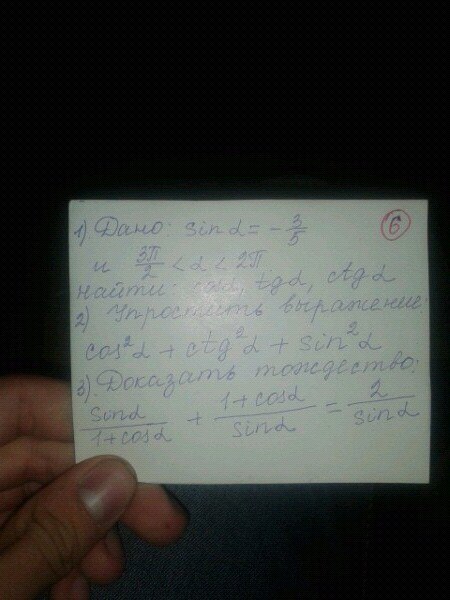 1) Дано: sin α = - 3/5
6
и 3π/2 < α < 2π
найти: cosα, tgα, ctgα
2) Упростить выражение:
cos²α + ctg²α + sin²α
3) Доказать тождество:
sinα/(1+cosα) + (1+cosα)/sinα = 2/sinα